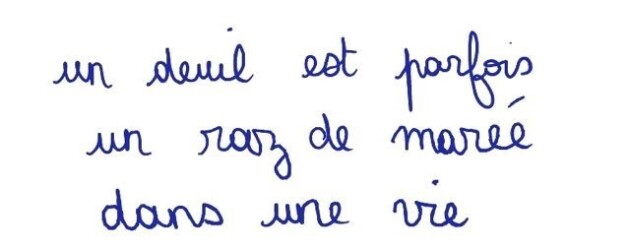 un deuil est parfois
un raz de mareé
dans une vie